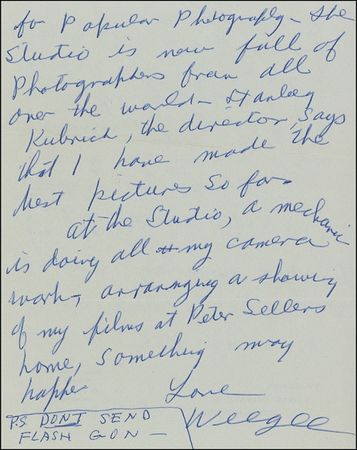 for Popular Photography – the
Studio is now full of
Photographers from all
over the world – Stanley
Kubrick, the director, says
that I have made the
best pictures so far –
at the Studio, a mechanic
is doing all my camera
work, arranging a showing
of my films at Peter Sellers
home, something may
happe
Love
Weegee
P.S DONT SEND
FLASH GON –